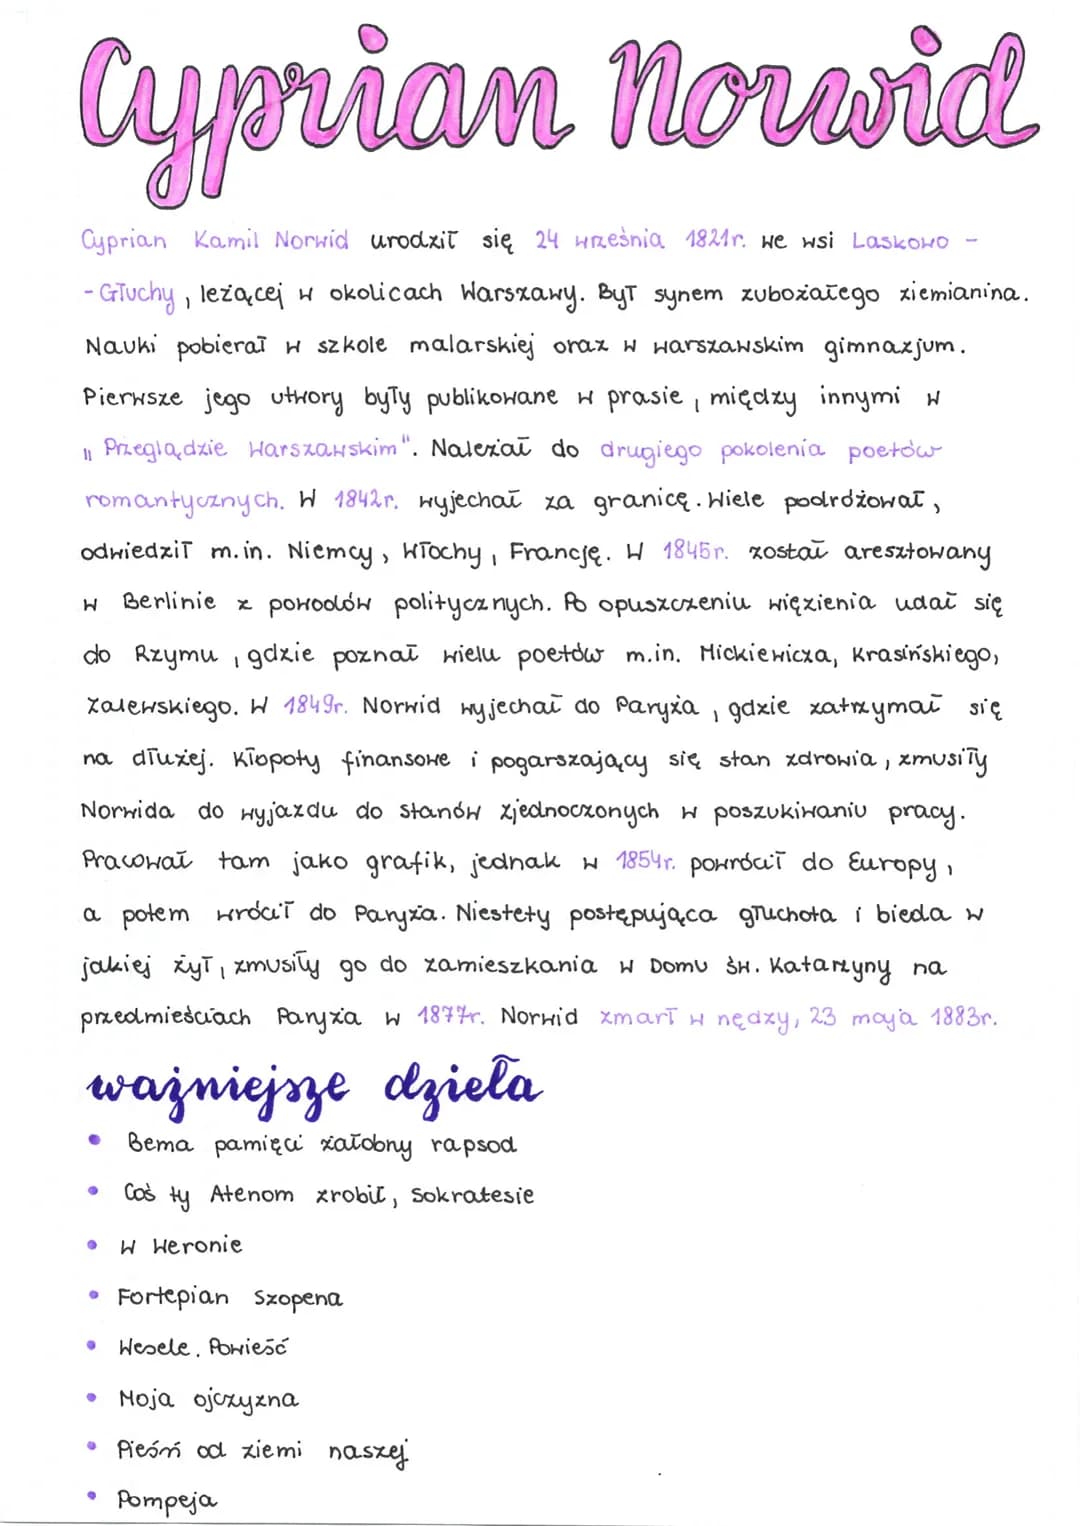 Cyprian Norwid
Cyprian Kamil Norwid urodził się 24 września 1821r. we wsi Laskowo -
- Głuchy, leżącej w okolicach Warszawy. Był synem zubożałego ziemianina.
Nauki pobierał w szkole malarskiej oraz w warszawskim gimnazjum.
Pierwsze jego utwory były publikowane w prasie, między innymi w
„Przeglądzie Warszawskim". Należał do drugiego pokolenia poetów
romantycznych. W 1842r. wyjechał za granicę. Wiele podróżował,
odwiedził m.in. Niemcy, Włochy, Francję. W 1845r. został aresztowany
w Berlinie z powodów politycznych. Po opuszczeniu więzienia udał się
do Rzymu, gdzie poznał wielu poetów m.in. Mickiewicza, Krasińskiego,
Zalewskiego. W 1849r. Norwid wyjechał do Paryża, gdzie zatrzymał się
na dłużej. Kłopoty finansowe i pogarszający się stan zdrowia, zmusiły
Norwida do wyjazdu do Stanów Zjednoczonych w poszukiwaniu pracy.
Pracował tam jako grafik, jednak w 1854r. powrócił do Europy,
a potem wrócił do Paryża. Niestety postępująca głuchota i bieda w
jakiej żył, zmusiły go do zamieszkania w Domu św. Katarzyny na
przedmieściach Paryża w 1877r. Norwid zmarł w nędzy, 23 maja 1883r.
ważniejsze dzieła
• Bema pamięci żałobny rapsod
• Coś ty Atenom zrobił, Sokratesie
• W Weronie
• Fortepian Szopena
• Wesele. Powieść
• Moja ojczyzna
• Pieśń od ziemi naszej
• Pompeja